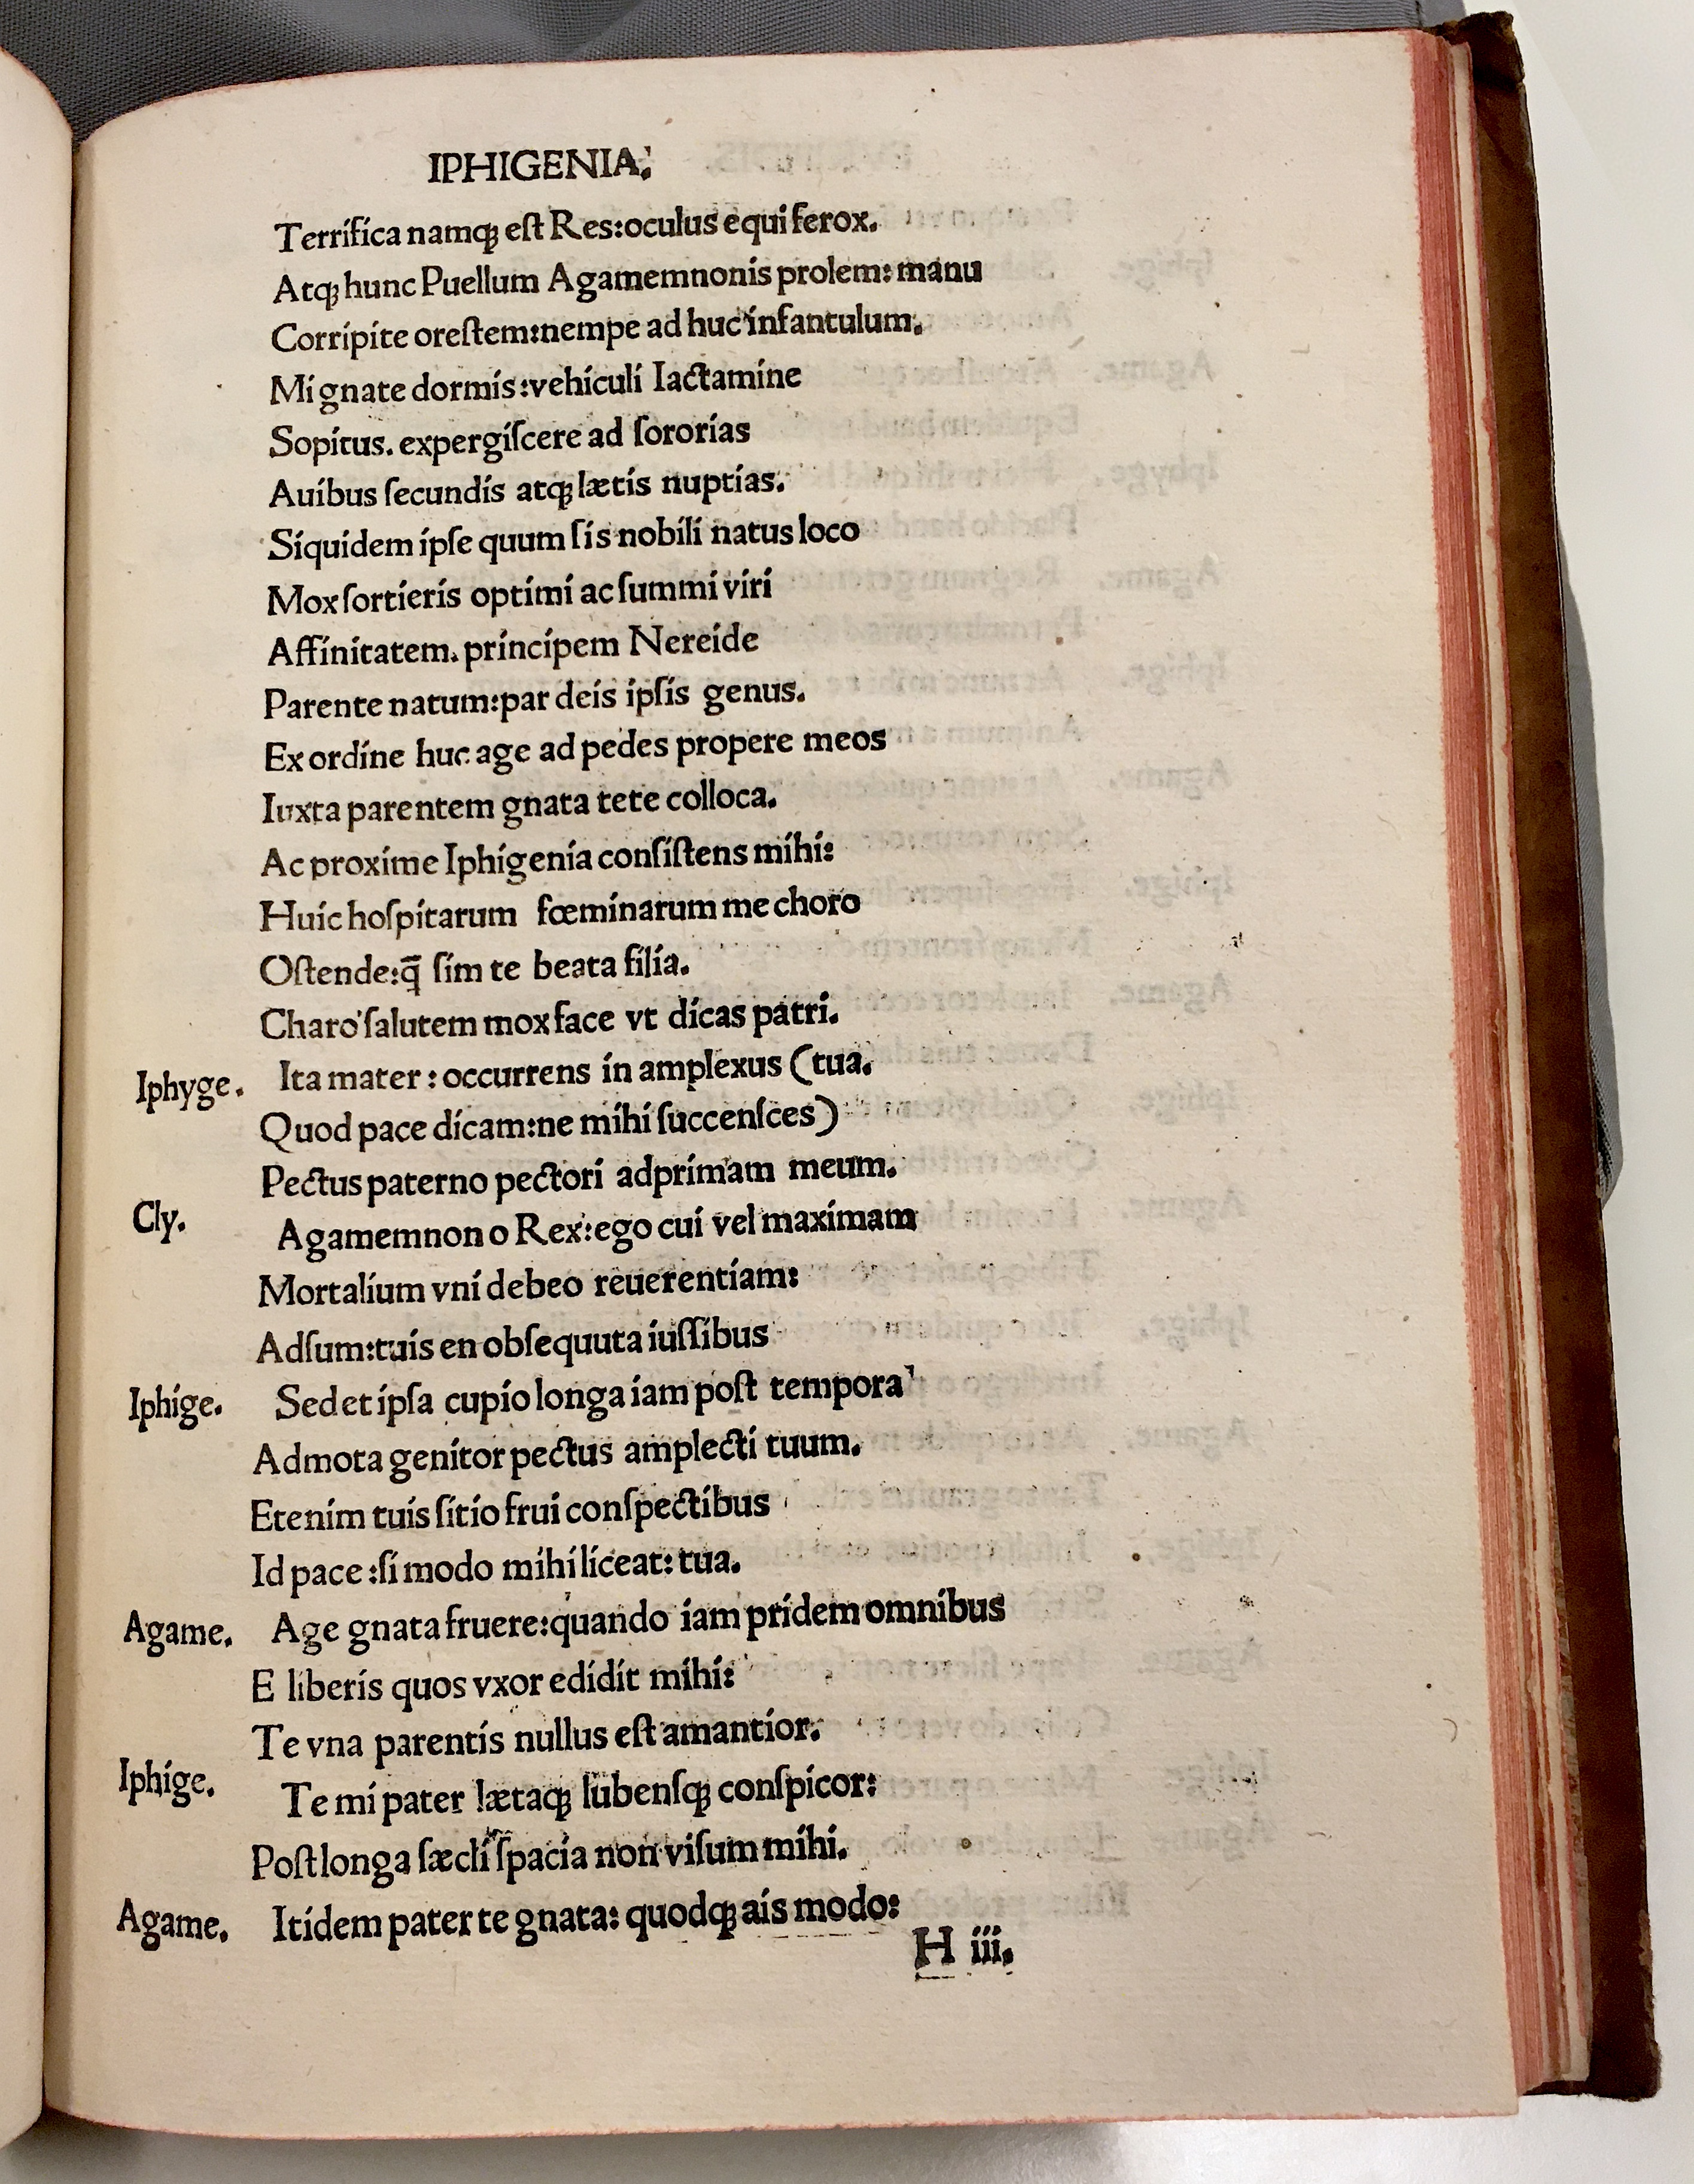 IPHIGENIA.
Terrifica namqꝫ eſt Res:oculus equi ferox.
Atqꝫ hunc Puellum Agamemnonis prolem: manu
Corripite oreſtem:nempe ad huc infantulum.
Mi gnate dormis:vehiculi Iactamine
Sopitus. expergiſcere ad ſororias
Auibus ſecundis atqꝫ lætis nuptias.
Siquidem ipſe quum ſis nobili natus loco
Mox ſortieris optimi ac ſummi viri
Affinitatem. principem Nereide
Parente natum:par deis ipſis genus.
Ex ordine huc age ad pedes propere meos
Iuxta parentem gnata tete colloca.
Ac proxime Iphigenia conſiſtens mihi:
Huic hoſpitarum fœminarum me choro
Oſtende:q̄ ſim te beata filia.
Charo ſalutem mox face vt dicas patri.
Iphyge. Ita mater : occurrens in amplexus (tua.
Quod pace dicam:ne mihi ſuccenſces)
Pectus paterno pectori adprimam meum.
Cly. Agamemnon o Rex:ego cui vel maximam
Mortalium vni debeo reuerentiam:
Adſum:tuis en obſequuta iuſſibus
Iphige. Sed et ipſa cupio longa iam poſt tempora
Admota genitor pectus amplecti tuum.
Etenim tuis ſitio frui conſpectibus
Id pace :ſi modo mihi liceat: tua.
Agame. Age gnata fruere:quando iam pridem omnibus
E liberis quos vxor edidit mihi:
Te vna parentis nullus eſt amantior.
Iphige. Te mi pater lætaqꝫ lubenſqꝫ conſpicor:
Poſt longa ſæcli ſpacia non viſum mihi.
Agame. Itidem pater te gnata: quodqꝫ ais modo:
H iii.